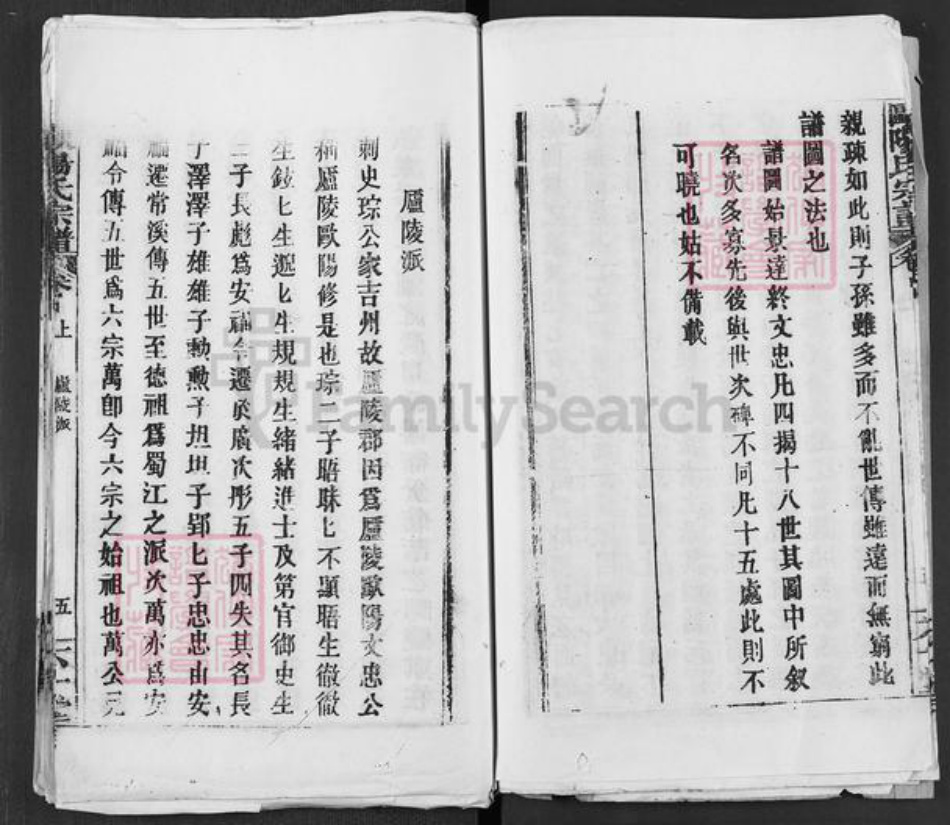 親疎如此則子孫雖多而不亂世傳雖遠而無窮此
譜圖之法也
譜圖始景達終文忠凡四揭十八世其圖中所叙
名次多寡先後與世次碑不同凡十五處此則不
可曉也姑不備載
廬陵派
刺史琮公家吉州故廬陵郡因爲廬陵歐陽文忠公
稱廬陵歐陽修是也琮二子晤昧匕不顯晤生徹徹
生鉉匕生遡匕生規規生緒緒進士及第官御史生
子長彪爲安福令遷次彤五子四失其名長
子澤澤子雄雄子勳勲子坦坦子郢匕子忠忠由安
福遷常溪傳五世至德祖爲蜀江之派次萬亦爲安
福令傳五世爲六宗萬即今六宗之始祖也萬公元
陽氏宗譜
上
廬陵派
五
FamilySearch